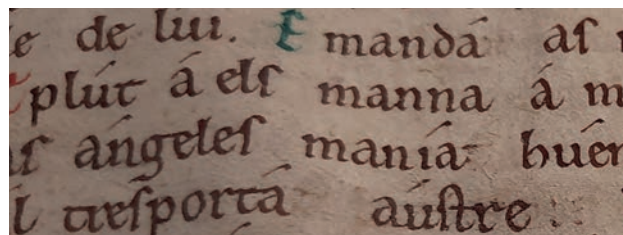 e de lui. E mandá aſ
plút á elſ manna á m
ſ ángeleſ maniá buér
l treſportá aúſtre